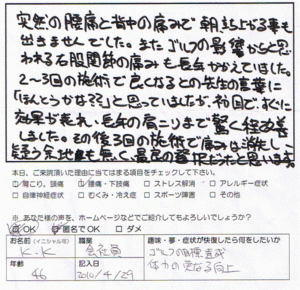 突然の腰痛と背中の痛みで朝立ち上がる事も
出きませんでした。またゴルフの影響からと思
われる右股関節の痛みも長年かかえていました。
2〜3回の施術で良くなるとの先生の言葉に
「ほんとうかな??」と思っていましたが、初回で、すぐに
効果が表れ、長年の肩こりまで驚く程改善
しました。その後3回の施術で痛みは消失し、
疑う余地も無く、最良の選択だったと思います。
本日、ご来院頂いた理由に当てはまる項目をチェックして下さい。
□肩こり、頭痛 □腰痛・下肢痛 □ストレス解消 □アレルギー症状
□自律神経症状 □むくみ・冷え症 □スポーツ障害 □その他
※ あなた様の声を、ホームページなどでご紹介してもよろしいでしょうか?
□OK □匿名でOK □ダメ
お名前(イニシャル可) 職業 趣味・夢・症状が快復したら何をしたいか
K・K 会社員 ゴルフの目標達成
年齢 記入日 体力の更なる向上
46 2010/4/29